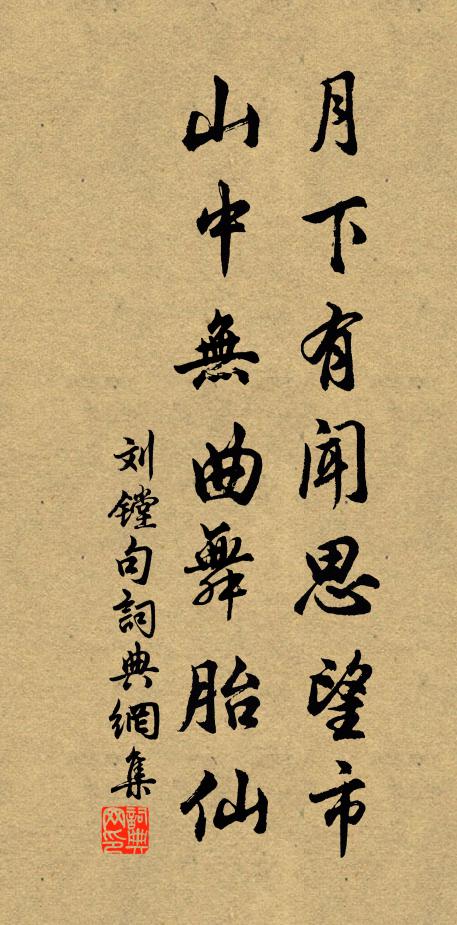 月下有闻思望市
山中無曲舞胎仙
刘鏜句詞典網集
詞典网印